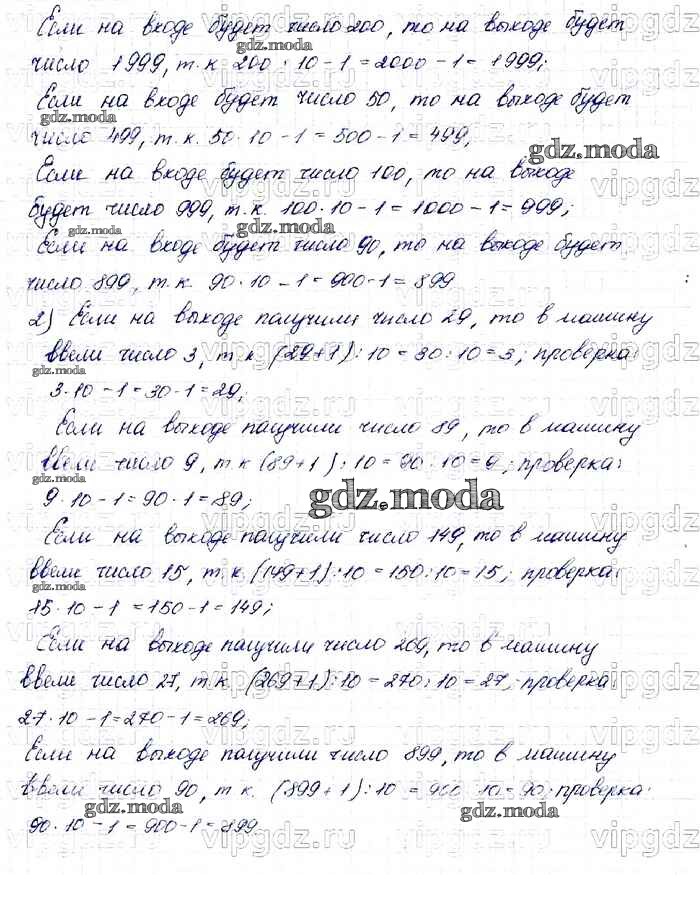 Если на входе будет число 200, то на выходе будет
число 1999, т.к 200 · 10 - 1 = 2000 - 1 = 1999;
Если на входе будет число 50, то на выходе будет
число 499, т.к. 50 · 10 - 1 = 500 - 1 = 499;
Если на входе будет число 100, то на выходе
будет число 999, т.к. 100 · 10 - 1 = 1000 - 1 = 999;
Если на входе будет число 90, то на выходе будет
число 899, т.к. 90 · 10 - 1 = 900 - 1 = 899
2) Если на выходе получили число 29, то в машину
ввели число 3, т.к. (29+1) : 10 = 30 : 10 = 3; проверка:
3 · 10 - 1 = 30 - 1 = 29;
Если на выходе получили число 89, то в машину
ввели число 9, т.к (89+1) : 10 = 90 : 10 = 9; проверка:
9 · 10 - 1 = 90 - 1 = 89;
gdz.moda
Если на выходе получили число 149, то в машину
ввели число 15, т.к. (149+1) : 10 = 150 : 10 = 15; проверка:
15 · 10 - 1 = 150 - 1 = 149;
Если на выходе получили число 269, то в машину
ввели число 27, т.к. (269+1) : 10 = 270 : 10 = 27; проверка:
27 · 10 - 1 = 270 - 1 = 269;
Если на выходе получили число 899, то в машину
ввели число 90, т.к. (899+1) : 10 = 900 : 10 = 90; проверка:
90 · 10 - 1 = 900 - 1 = 899